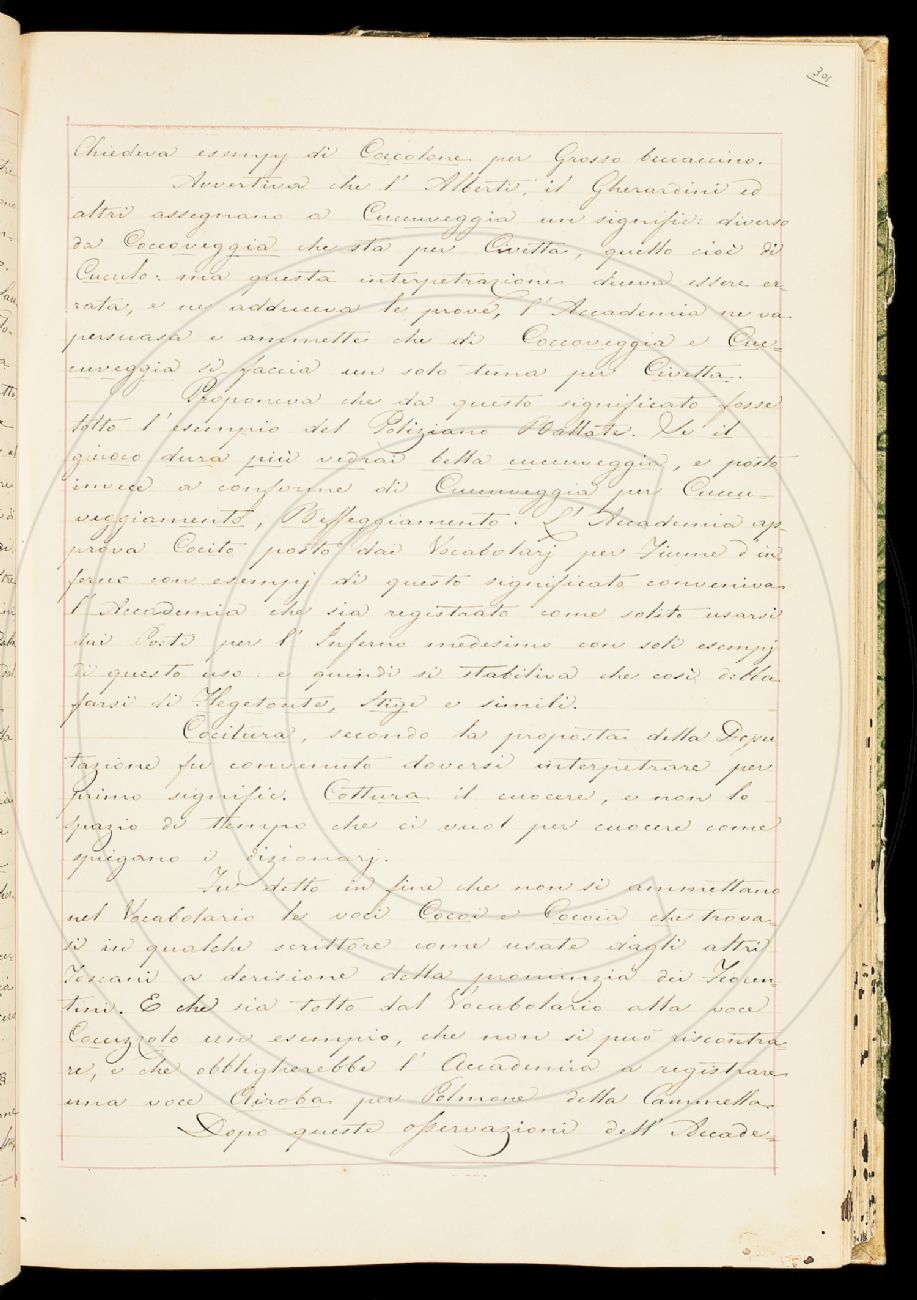 301
Chiedeva esempj di Coccolone per Grosso beccaccino.
Avvertiva che l' Alberti, il Gherardini ed
altri assegnano a Cuccuveggia un signific: diverso
da Coccoveggia che sta per Civetta, quello cioè di
Cuculo: ma questa interpetrazione diceva essere er-
rata, e ne adduceva le prove, l' Accademia ne va
persuasa e ammette che di Coccoveggia e Cuc=
cuveggia si faccia un solo tema per Civetta.
Proponeva che da questo significato fosse
tolto l' esempio del Poliziano Ballate. Se il
giuoco dura più vedrai bella cuccuveggia, e posto
invece a conferme di Cuccuveggia per Cuccu=
veggiamento, Beffeggiamento. L' Accademia ap=
prova Cocito posto dai Vocabolarj per Fiume d' in=
ferno con esempj di questo significato conveniva
l' Accademia che sia registrato come solito usarsi
dai Poeti per l' Inferno medesimo con soli esempj
di questo uso: e quindi si stabiliva che così debba
farsi di Flegetonte, Stige e simili.
Cocitura, secondo la proposta della Depu
tazione fu convenuto doversi interpetrare per
primo signific. Cottura il cuocere, e non lo
spazio di tempo che ci vuol per cuocere come
spiegano i dizionarj.
Fu detto in fine che non si ammettano
nel Vocabolario le voci Cocoi e Cocoia che trova=
si in qualche scrittore come usate dagli altri
Toscani a derisione della pronunzia dei Fioren=
tini. E che sia tolto dal Vocabolario alla voce
Cocuzzolo un esempio, che non si può riscontra=
re, e che obbligherebbe l' Accademia a registrare
una voce Airoba per Polmone della Cammella.
Dopo queste osservazioni dell' Accade=